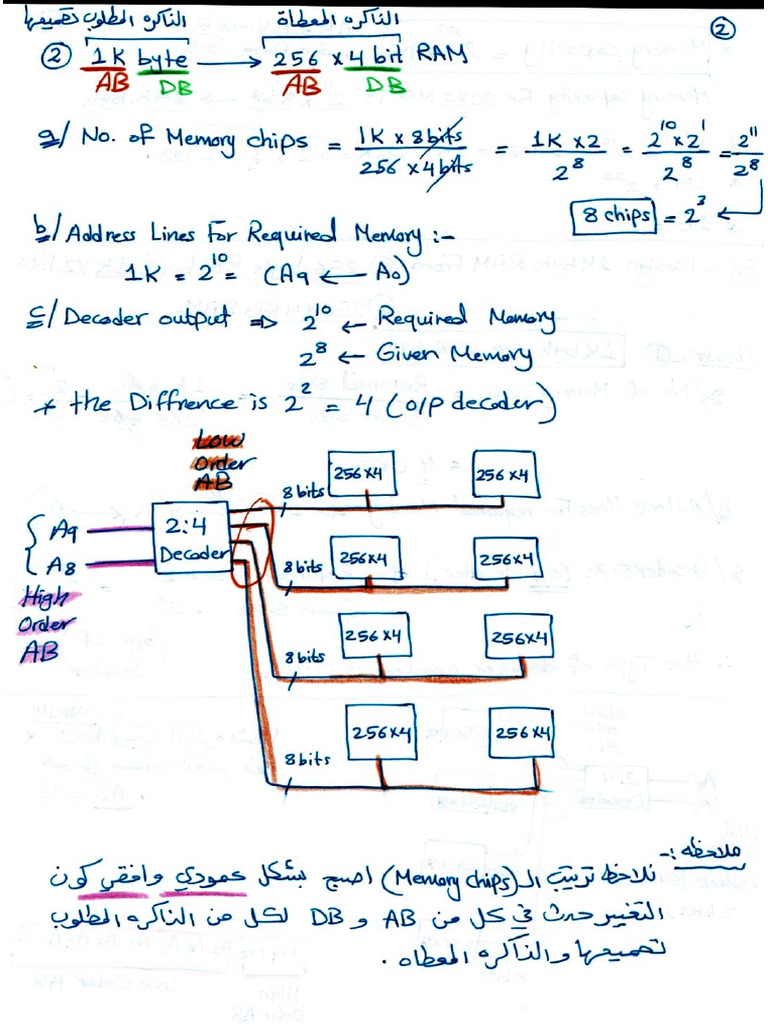 الذاكره المطلوب تصميمها الذاكره المعطاة
②
② 1K byte → 256 x 4 bit RAM
AB DB AB DB
a/ No. of Memory chips = 1K x 8bits / 256 x 4bits = 1K x 2 / 2^8 = 2^10 x 2^1 / 2^8 = 2^11 / 2^8
8 chips = 2^3 ←
b/ Address Lines For Required Memory :-
1K = 2^10 = (A9 ← A0)
c/ Decoder output ⇒ 2^10 ← Required Memory
2^8 ← Given Memory
* the Diffrence is 2^2 = 4 (o/p decoder)
Low
Order
AB
8 bits 256x4 256x4
A9 2:4
A8 Decoder
8 bits 256x4 256x4
High
Order
AB
8 bits 256x4 256x4
8 bits 256x4 256x4
ملاحظه :-
نلاحظ ترتيب الـ (Memory chips) اصبح بشكل عمودي وافقي كون
التغيير حدث في كل من AB و DB لكل من الذاكره المطلوب
تصميمها والذاكره المعطاه .